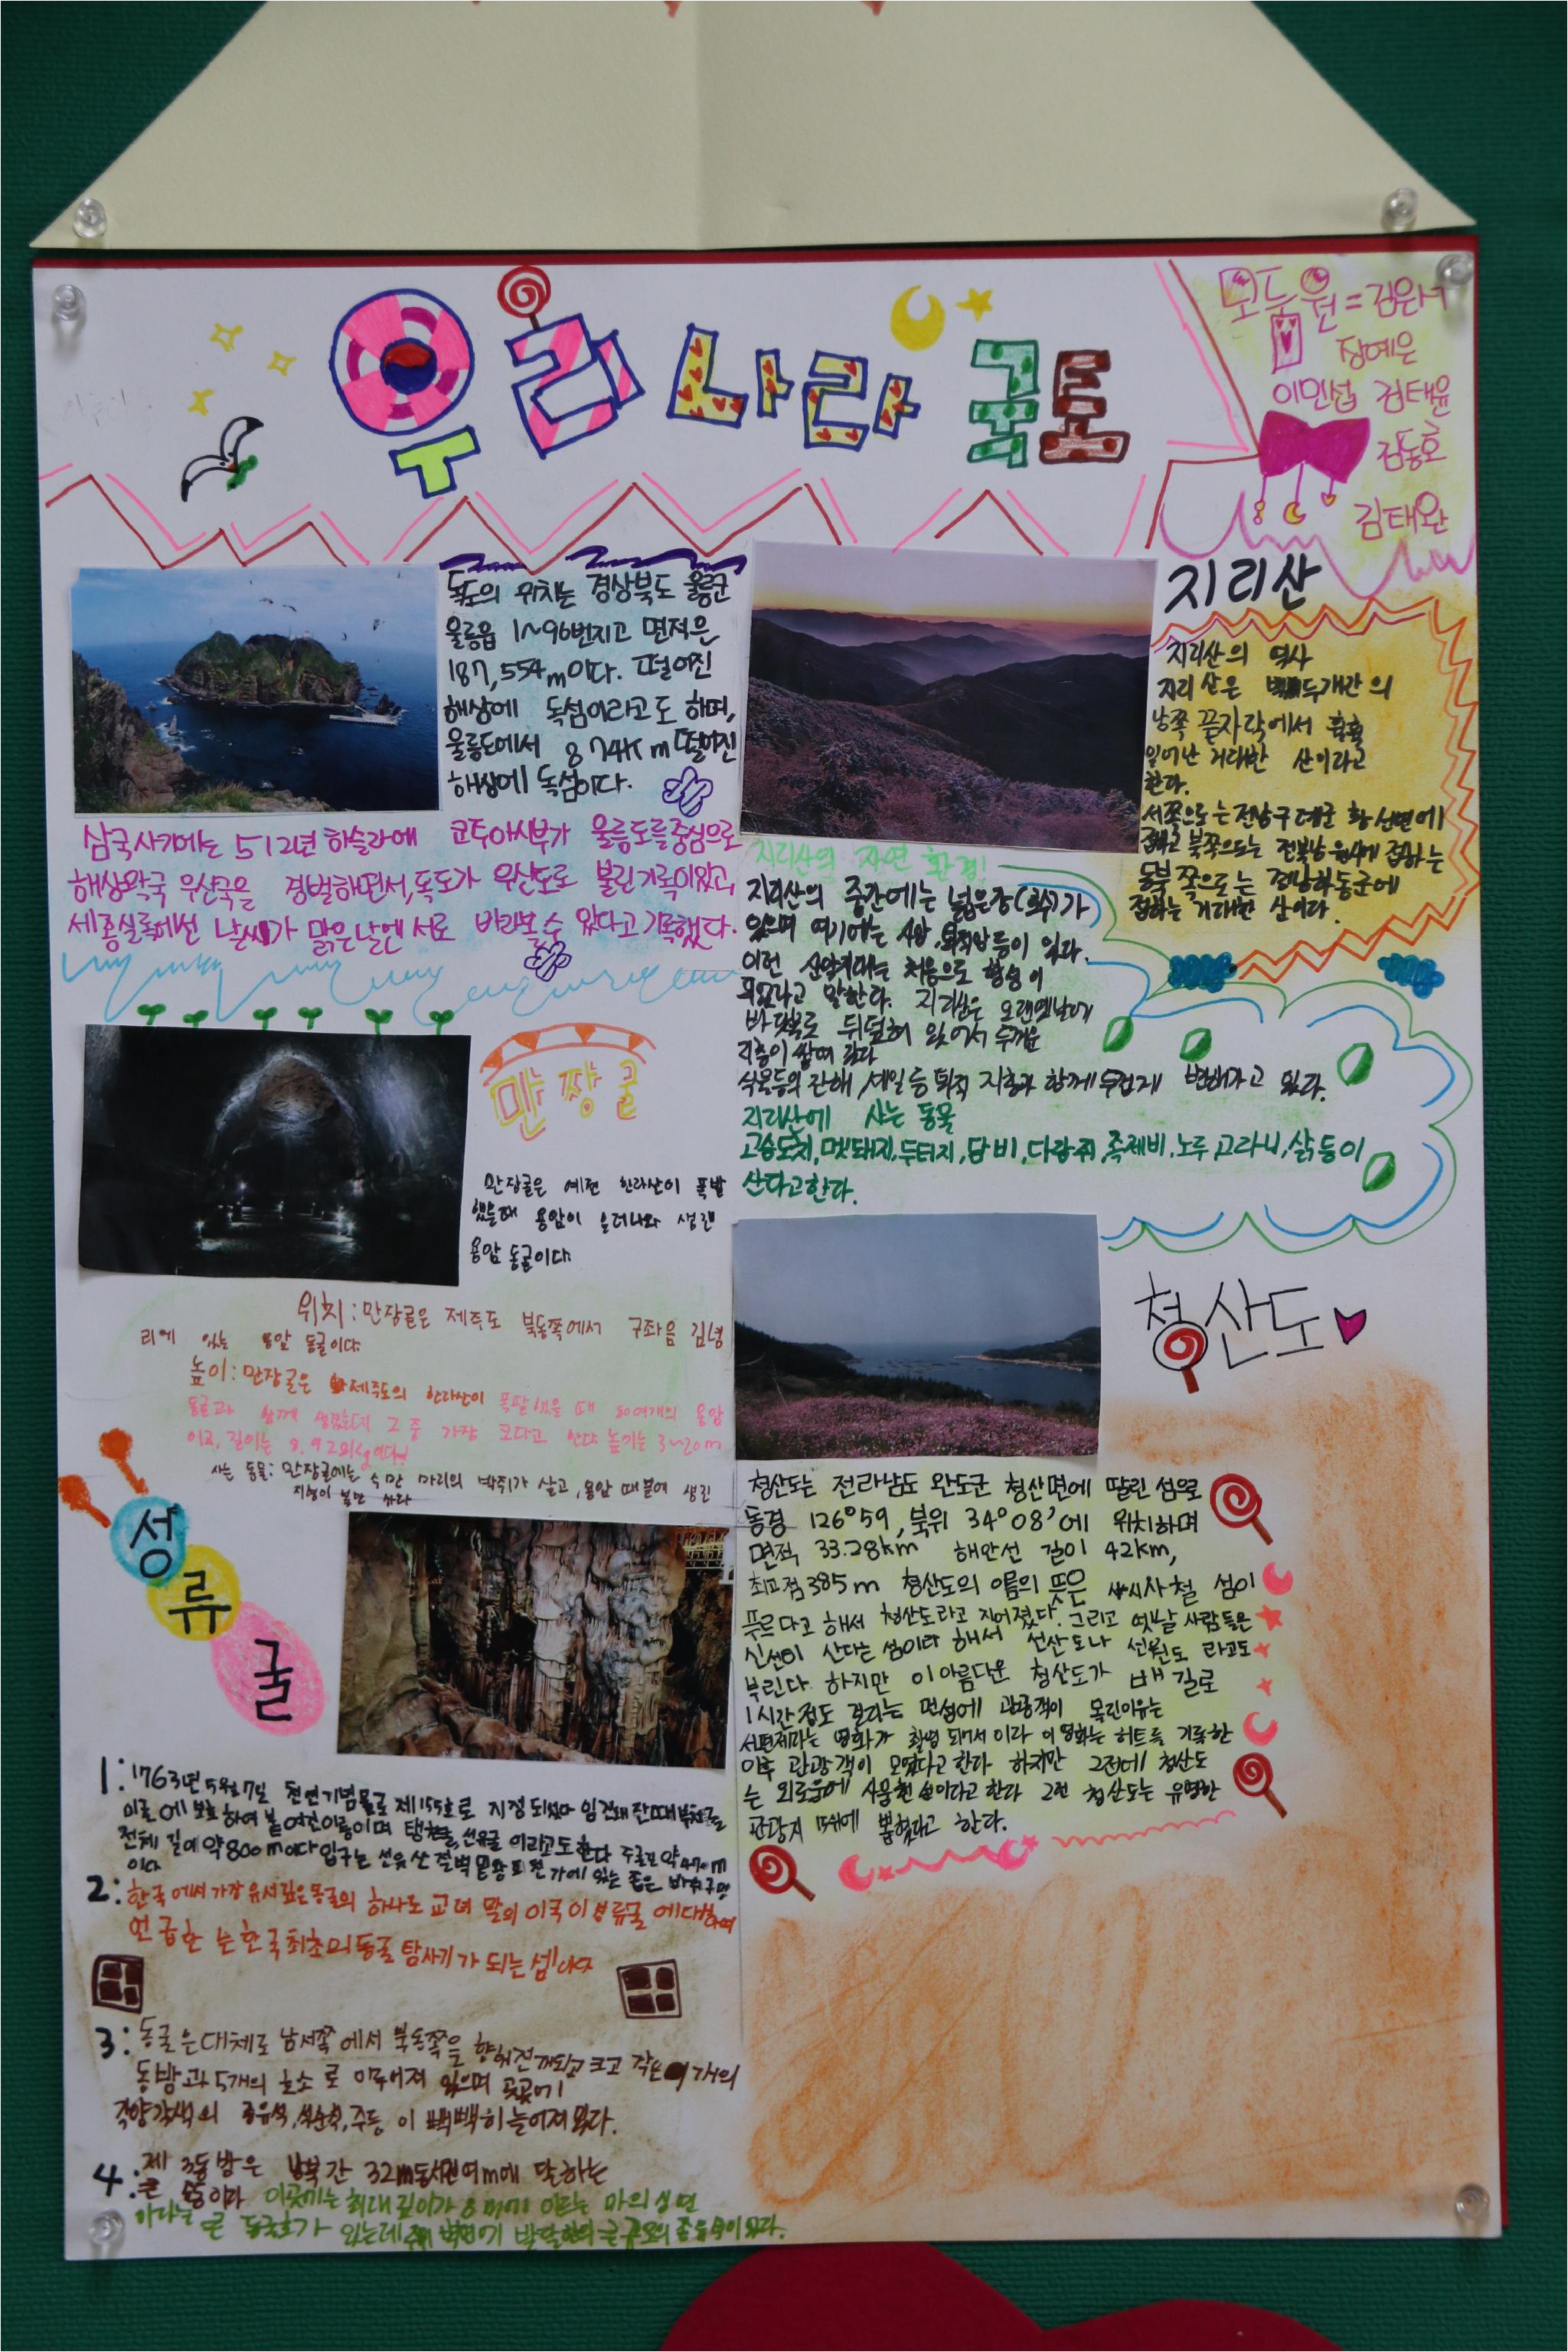 우리나라 국토
모둠원=김은서
장예은
이민섭 김태윤
김동호
김태완
독도의 위치는 경상북도 울릉군
울릉읍 1~96번지고 면적은
187,554m이다. 떨어진
해상에 독섬이라고도 하며,
울릉도에서 874Km 떨어진
해상에 독섬이다.
삼국사기에는 512년 하슬라에 울릉도를중심으로
해상왕국 우산국을 경벌하면서,독도가 우산도로 불린기록이있고,
세종실록에선 날씨가 맑은날엔 서로 바라볼수 있다고 기록했다.
지리산
지리산의 역사
지리산은 백두대간의
남쪽 끝자락에서
일어난 거대한 산이라고
한다.
서쪽으로는 전남구례군
접하고 북쪽으로는 접하는
동부쪽으로는 경남하동군에
접하는 거대한 산이다.
지리산의 자연 환경!
지리산의 중간에는 넓은 가
있으며 여기에는 등이 있다.
이런 처음으로 형성이
되었다고 말한다. 지리산은 오랜옛날에
바닷물로 뒤덮혀 있어서 두꺼운
지층이 쌓여 갔다
식물등의 잔해, 세일등 퇴적 지층과 함께 두껍게 변해가고 있다.
지리산에 사는 동물
고슴도치,멧돼지,두더지,담비,다람쥐,족제비,노루,고라니,삵등이
산다고한다.
만장굴
만장굴은 예전 한라산이 폭발
했을때 용암이 흘러나와 생긴
용암 동굴이다.
위치:만장굴은 제주도 북동쪽에서 구좌읍 김녕
리에 있는 용암 동굴이다.
높이:만장굴은 제주도의 한라산이 폭발했을 때 80여개의 용암
동굴과 함께 생겼는데 그 중 가장 크다고 한다 높이는 3~20m
이고, 길이는
사는 동물: 만장굴에는 수만 마리의 박쥐가 살고,용암 때문에 생긴
청산도
청산도는 전라남도 완도군 청산면에 딸린 섬으로
동경 126°59,북위 34°08'에 위치하며
면적 33.28km 해안선 길이 42km,
최고점385m 청산도의 이름의 뜻은 사시사철 섬이
푸르다고 해서 청산도라고 지어졌다.그리고 옛날 사람들은
신선이 산다는 섬이라 해서 선산도나 선원도 라고도
부린다 하지만 이아름다운 청산도가 배길로
1시간정도 걸리는 먼섬에 관광객이 몰린이유는
서편제라는 영화가 촬영 되어서 이라 이영화는 히트를 기록한
이후 관광객이 모였다고한다 하지만 그전에 청산도
는 외로움에 섬이라고 한다 그런 청산도는 유명한
관광지 뽑혔다고 한다.
성류굴
1:1763년5월7일 천연기념물로 제155호로 지정 되었다
전체 길이 약800m이다 입구는 선유산 절벽밑
이다
2:한국에서 가장 유서깊은동굴의 하나로 고려 말의 에대하여
언급한 는한국최초의동굴 탐사기가 되는 셈이다
3:동굴은대체로 남서쪽에서 북동쪽을 향해 크고 작은 개의
동방과 5개의 호소로 이루어져 있으며 곳곳에
각양각색의 종유석,석순,석주등이 빽빽히늘어져있다.
4.제 3동방은 남북간 32m 에 달하는
이곳에는 최대깊이가 마의심연
이라는 큰 동굴호가 있는데 발달한 큰규모의종유석이있다.